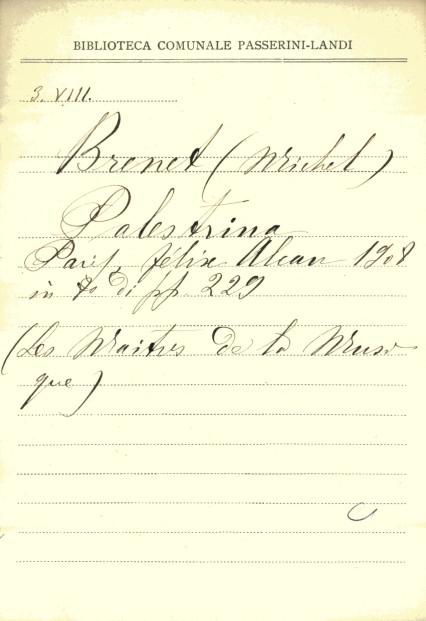 BIBLIOTECA COMUNALE PASSERINI-LANDI
3. VIII.
Brenet (Michel)
Palestrina
Paris, Félix Alcan 1908
in 8o di pp 229
(Les Maitres de la Musi
que)